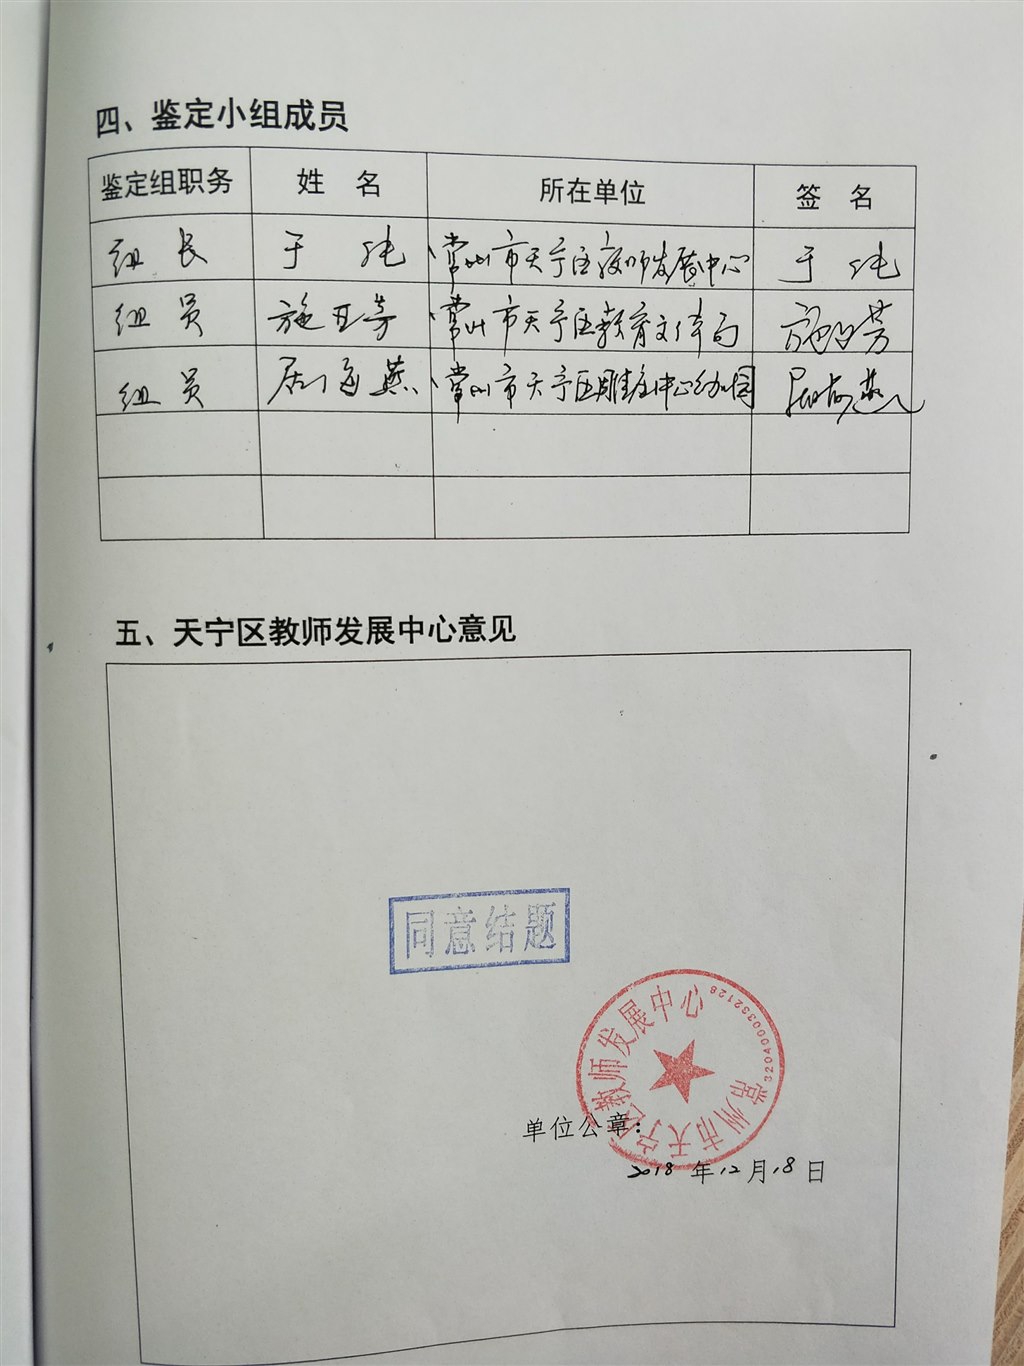 四、鉴定小组成员
鉴定组职务 姓 名 所在单位 签 名
组 长 于 纯 常州市天宁区教师发展中心 于 纯
组 员 施 芳 常州市天宁区教育文体局 施 芳
组 员 居 燕 常州市天宁区雕庄中心幼儿园 居 燕
五、天宁区教师发展中心意见
同意结题
常州市天宁区教师发展中心
3204000352128
单位公章：
2018 年 12 月 18 日